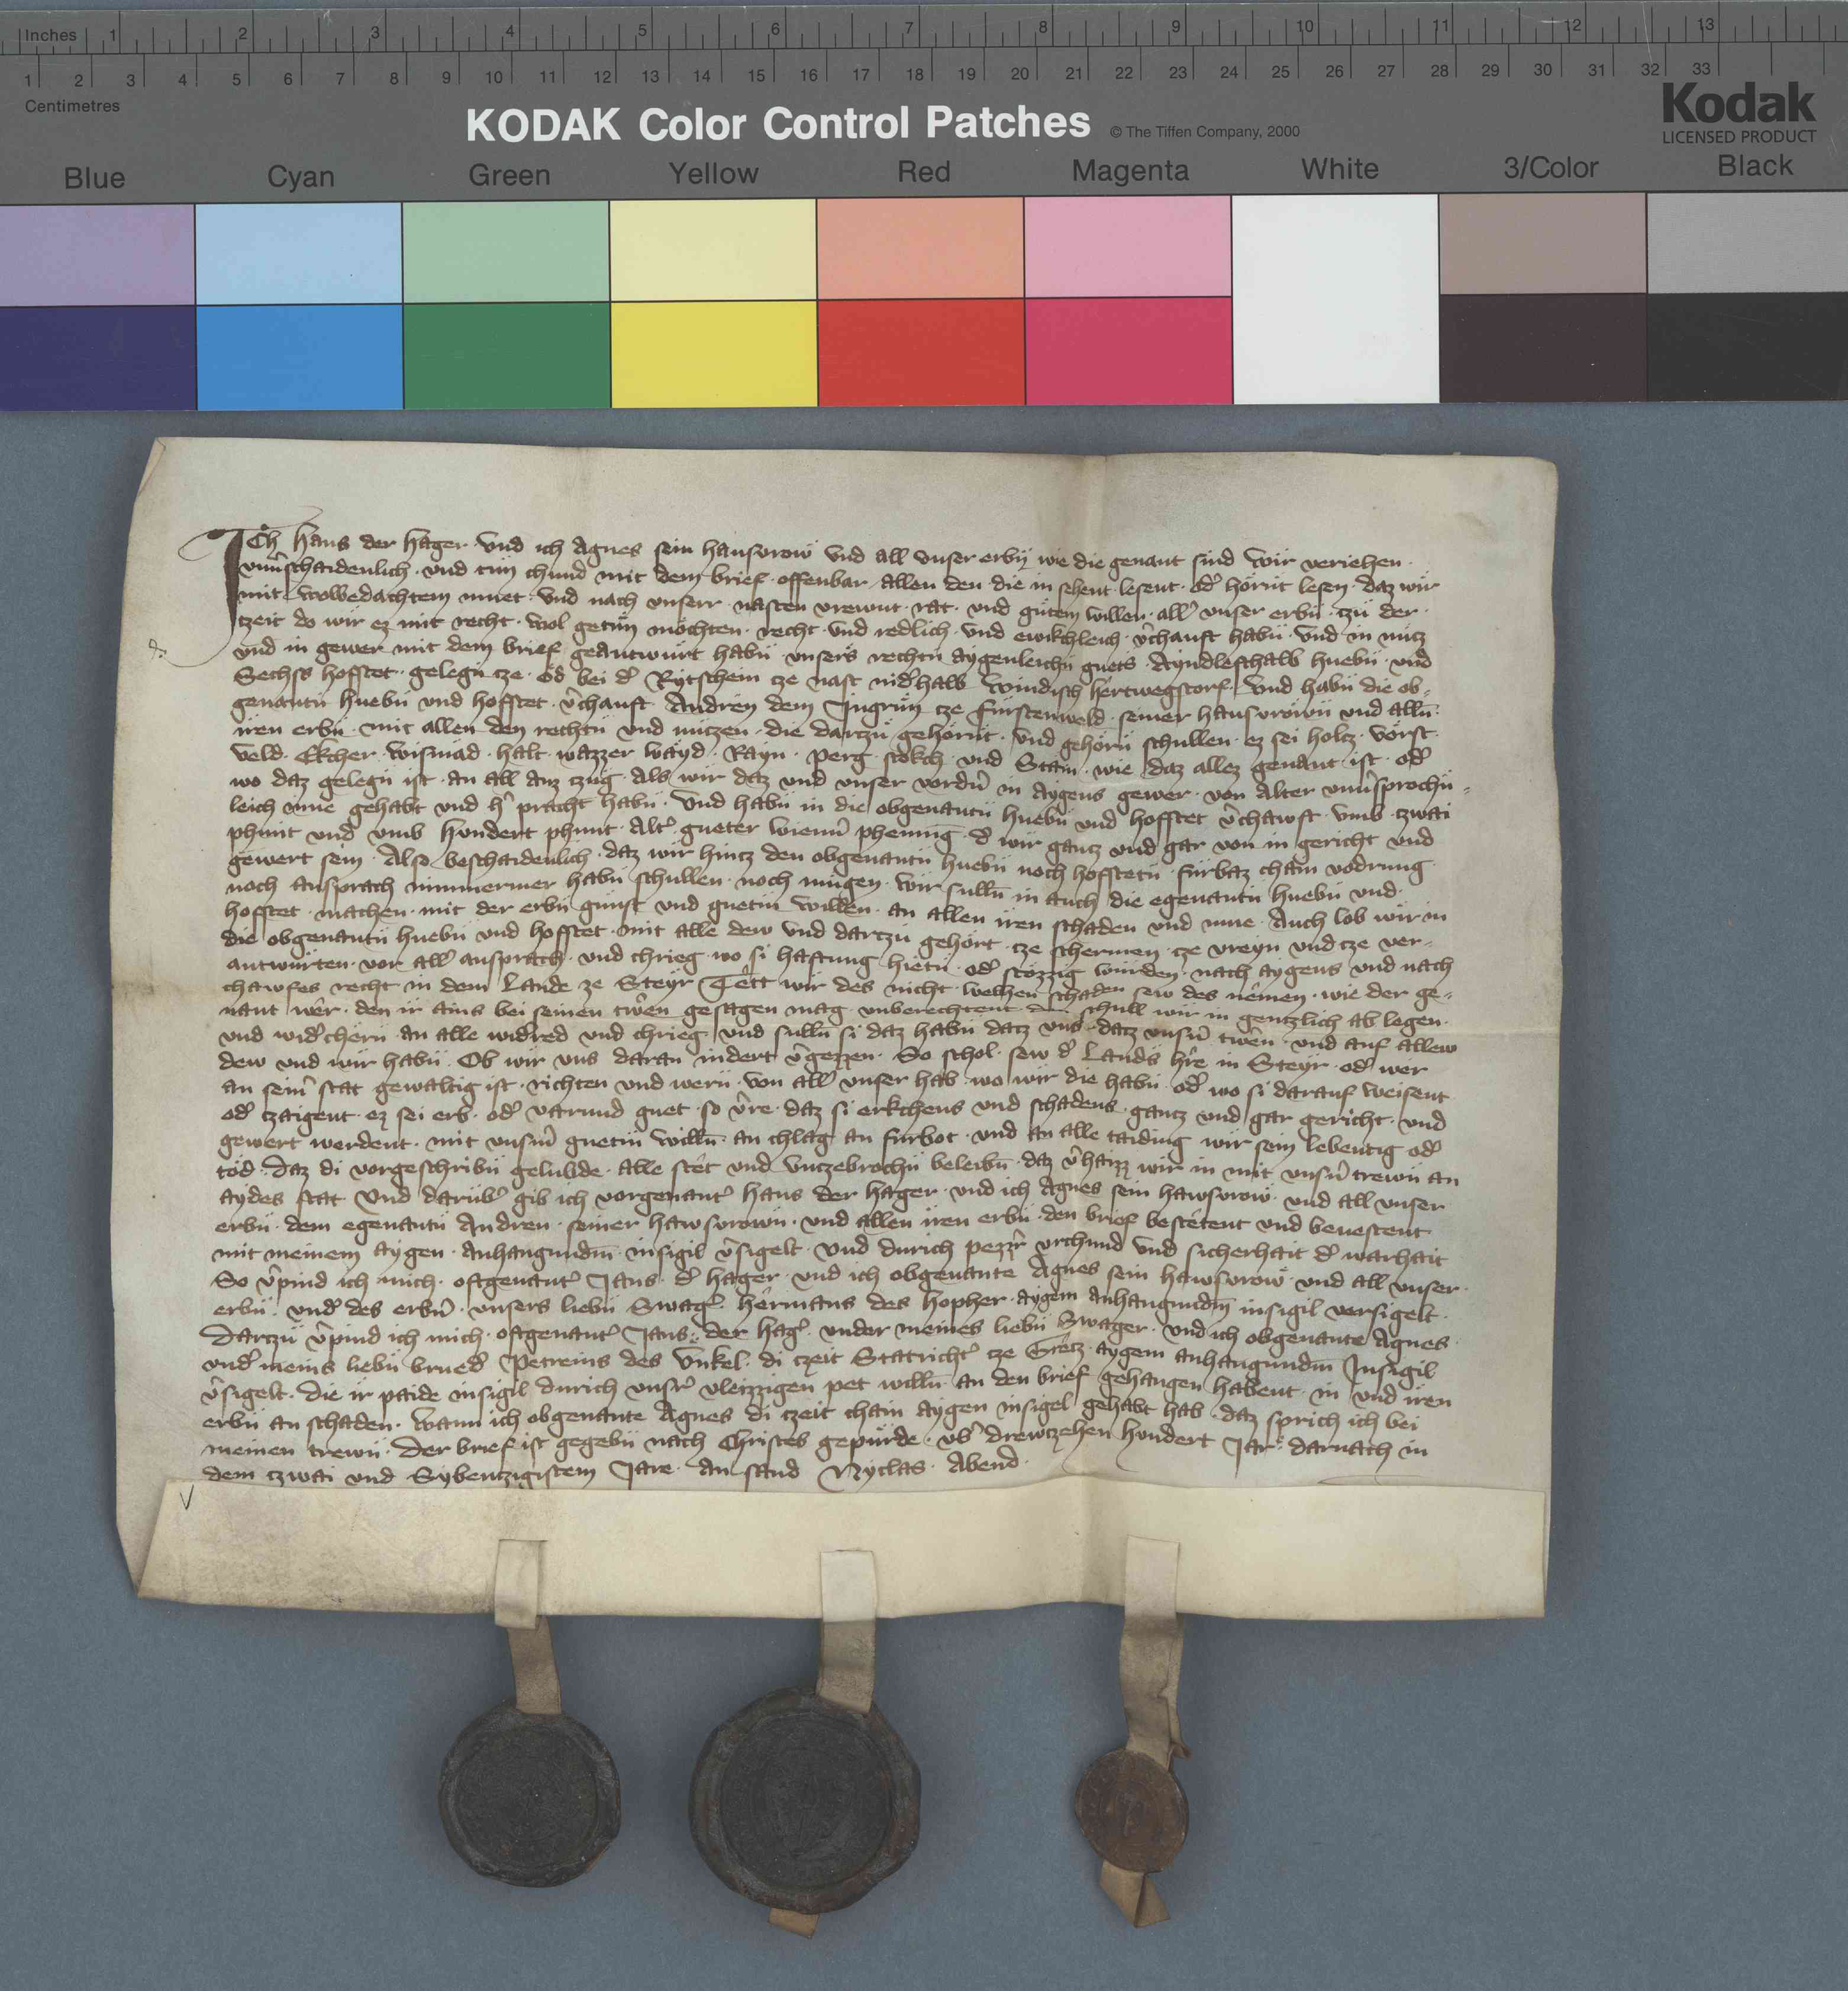 Inches 1 2 3 4 5 6 7 8 9 10 11 12 13
1 2 3 4 5 6 7 8 9 10 11 12 13 14 15 16 17 18 19 20 21 22 23 24 25 26 27 28 29 30 31 32 33
Centimetres
KODAK Color Control Patches © The Tiffen Company, 2000
Kodak
LICENSED PRODUCT
Blue Cyan Green Yellow Red Magenta White 3/Color Black
Ich Hans der Hager · vnd ich Agnes sein hausvrow vnd all vnser erbn̄ wie die genant sind wir veriehen ·
vnu̇schaidenlich · vnd tun chund mit dem brief · offenbar allen den die in sehent lesent · od' hörnt lesen · daz wir
mit wolbedachtem muet · vnd nach vnserr nasten vrewnt · rat · vnd gutem willen · all' vnser erbn̄ · tzü der ·
tzeit do wir ez mit recht · wol getün möchten · recht vnd redlich · vnd ewikchleich · v'chauft habn̄ · vnd in nucz
vnd in gewer mit dem brief geantwurt habn̄ vnsers rechtn̄ aygenleichn̄ guets · Ayndlefthalb huebn̄ · vnd
Sechss hofstet · gelegn̄ tze · od' bei d' Rytschein tze nast nid'halb Windisch hertwegstorf · Vnd habn̄ die ob-
genantn̄ huebn̄ vnd hofstet · v'chauft Andren dem Ingrün tze Fürstenveld · seiner hausvrown̄ vnd alln̄
iren erbn̄ · mit allen den rechtn̄ vnd nutzen · die dartzü gehörnt · vnd gehörn̄ schullen · ez sei holtz · vörst ·
veld · Ekcher · wismad · halt · wazzer wayd · Rayn · perg · stokch · vnd Stain · wie daz allez genant ist · od'
wo daz gelegn̄ ist · an all auz tzüg · als wir daz vnd vnser vordn̄ in aygens gewer · von alter vnu'sprochn̄-
leich inne gehabt vnd h' pracht habn̄ · Vnd habn̄ in die obgenantn̄ huebn̄ vnd hofstet v'chawft · vmb · tzwai
phunt vnd vmb hundert phunt · alt' gueter wienn' phennig · d' wir gantz vnd gar von in gericht vnd
gewert sein · Also beschaidenlich · daz wir hintz den obgenantn̄ huebn̄ noch hofstetn̄ · fürbaz chain vodrung
noch ansprach nimmermer habn̄ schullen · noch mugen · Wir sulln̄ in auch die egenantn̄ huebn̄ vnd ·
hofstet · machen · mit der erbn̄ gunst vnd guetm̄ willen · an allen iren schaden vnd mue · Auch lob wir in
die obgenantn̄ huebn̄ vnd hofstet · mit alle dew vnd dartzü gehört · tze schermen · tze vreyn vnd tze ver-
antwurten · vor all' ansprach · vnd chrieg · wo si haftung hietn̄ · od' stözzig wurden · nach aygens vnd nach
chawfes recht in dem Lande ze Steyr · Tett wir des nicht · welhen schaden sew des nemen · wie der ge-
nant wer · den ir ains bei seinen trewn gesagen mag · vnberechtent den schull wir in gentzlich ab legen ·
vnd wid'chern̄ · an alle widred vnd chrieg · vnd sulln̄ si daz habn̄ datz vns · datz vnsn̄ trewn · vnd auf allew
dew vnd wir habn̄ · Ob wir vns daran indert v'gezzen · So schol · sew d' Lands h're in Steyr · od' wer
an seim' stat gewaltig ist · richten vnd wern̄ · von all' vnser hab · wo wir die habn̄ · od' wo si darauf weisent ·
od' tzaigent · ez sei erb · od' varund guet · so v're · daz si erkchens vnd schadens gantz vnd gar gericht · vnd
gewert werdent · mit vnsm̄ guetm̄ willn̄ · an chlag an furbot · vnd an alle taiding wir sein lebentig od'
töd · Daz di vorgeschribn̄ gelubde · alle stet vnd vntzebrochn̄ beleibn̄ · daz v'haizz wir in mit vnsn̄ trewn̄ an
aydes stat · Vnd darüb' gib ich vorgenant' Hans der Hager · vnd ich Agnes sein hawsvrow · vnd all vnser
erbn̄ · dem egenantn̄ Andren · seiner hawsvrown̄ · vnd allen iren erbn̄ · den brief bestetent vnd beuestent
mit meinem aygen · anhangundm̄ · insigil v'sigelt · Vnd durich pezz'r vrchund vnd sicherhait d' warhait
So v'pind ich mich · oftgenant' Jans · d' Hager · vnd ich obgenante Agnes sein hawsvrow · vnd all vnser ·
erbn̄ · vnd' des erbn̄ · vnsers liebn̄ Swag' · Hermans des Hopher · aygem anhangundm̄ insigil versigelt ·
Dartzü v'pind ich mich · oftgenant' Jans · der Hag' · vnder meines liebn̄ Swager · vnd ich obgenante Agnes ·
vnd' meins liebn̄ brued' Petreins des Vnkel · di tzeit Statricht' tze Gretz · aygem anhangundm̄ Insigil
v'sigelt · die ir paide insigil durich vnsr' vleizzigen pet willn̄ · an den brief gehangen habent · in vnd iren
erbn̄ an schaden · Wann ich obgenante Agnes di tzeit chain aygen insigel gehabt hab · daz sprich ich bei
meinen trewn̄ · Der brief ist gegebn̄ nach Christes gepürde · vb' drewtzehen hundert Jar · darnach in
dem tzwai vnd Sybentzigistem Jare · An sand Nyclas · Abend ·
V